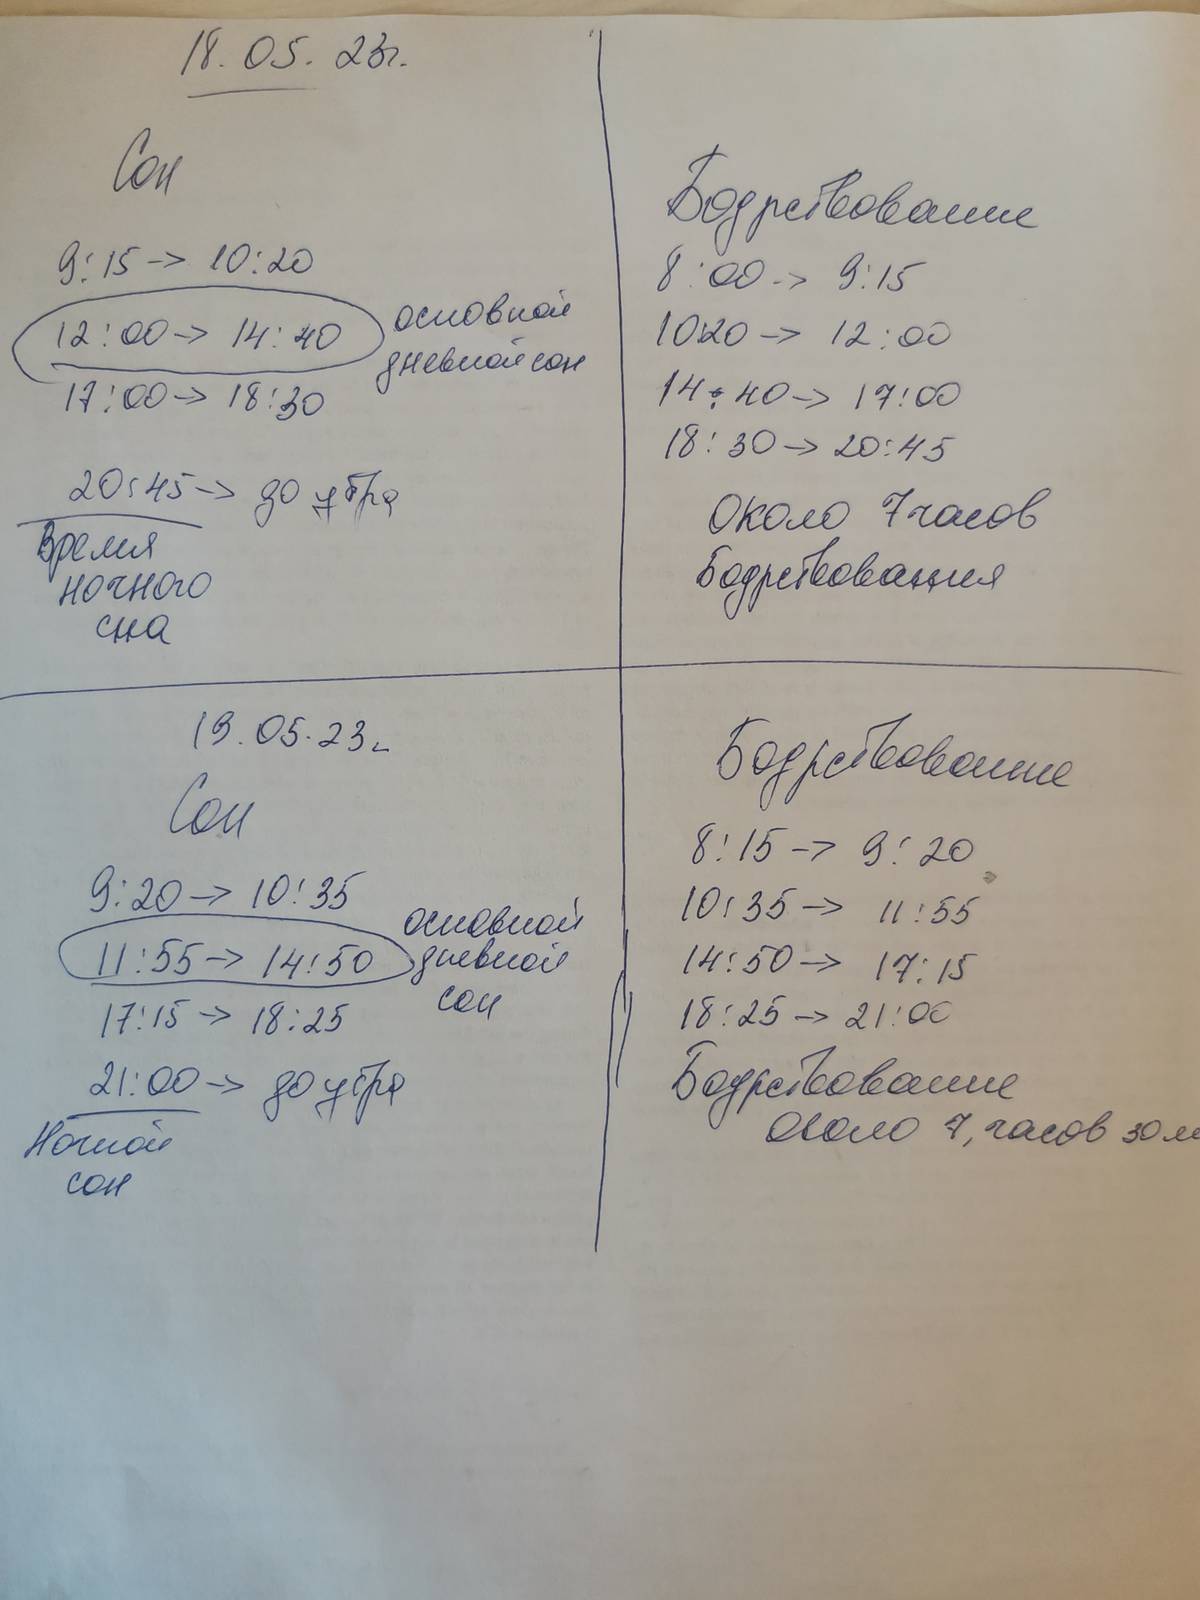 18.05.23г.
Сон
9:15 -> 10:20
12:00 -> 14:40 основной
дневной сон
17:00 -> 18:30
20:45 -> до утра
Время
ночного
сна
Бодрствование
8:00 -> 9:15
10:20 -> 12:00
14:40 -> 17:00
18:30 -> 20:45
Около 7 часов
Бодрствования
19.05.23г
Сон
9:20 -> 10:35
11:55 -> 14:50 основной
дневной
сон
17:15 -> 18:25
21:00 -> до утра
Ночной
сон
Бодрствование
8:15 -> 9:20
10:35 -> 11:55
14:50 -> 17:15
18:25 -> 21:00
Бодрствование
около 7, часов 30 м